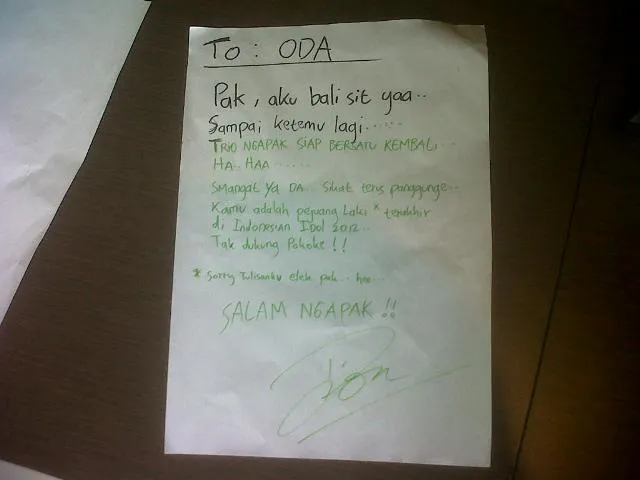 To : ODA
Pak, aku bali sit yaa..
Sampai ketemu lagi......
TRIO NGAPAK SIAP BERSATU KEMBALI...
HA.. HAA ......
SMangat ya DA... Sikat terus panggunge...
Kamu adalah pejuang Laki" terakhir
di Indonesian Idol 2012...
Tak dukung Pokoke !!
* Sorry Tulisanku elek pak... hee...
SALAM NGAPAK !!
Dion